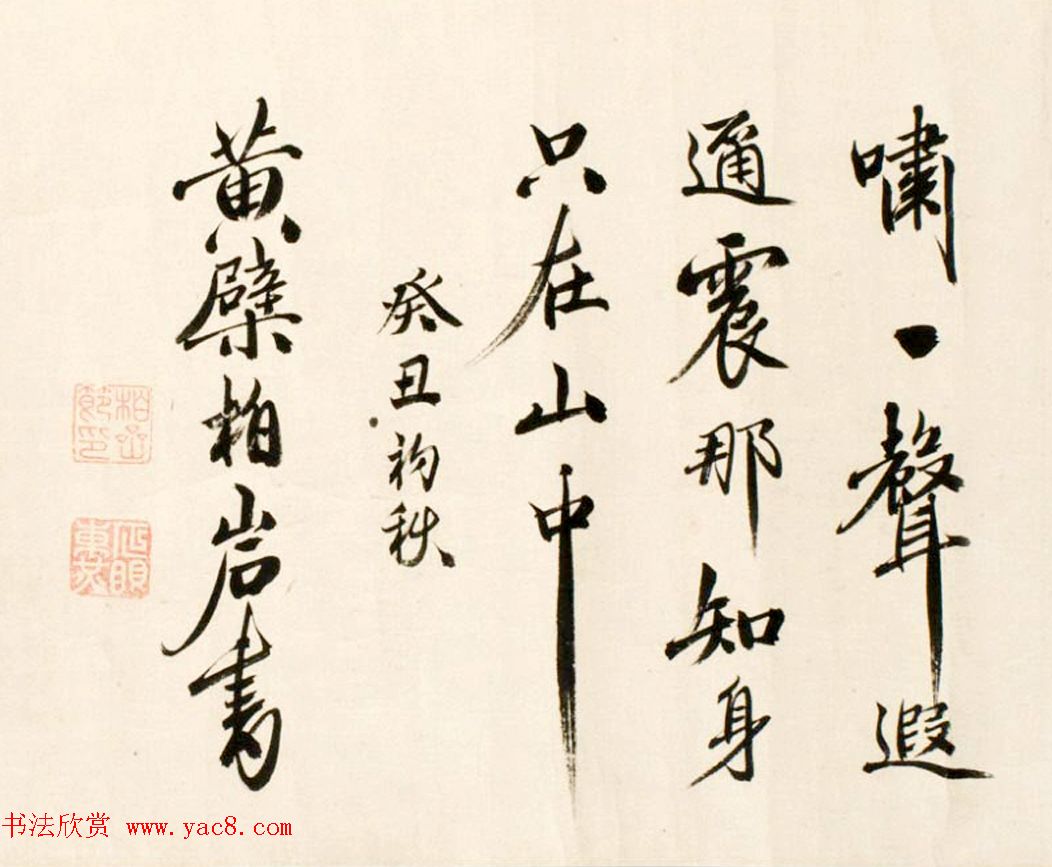 嘯一聲遐
通震那知身
只在山中
癸丑初秋
黄檗柏岩書
书法欣赏 www.yac8.com